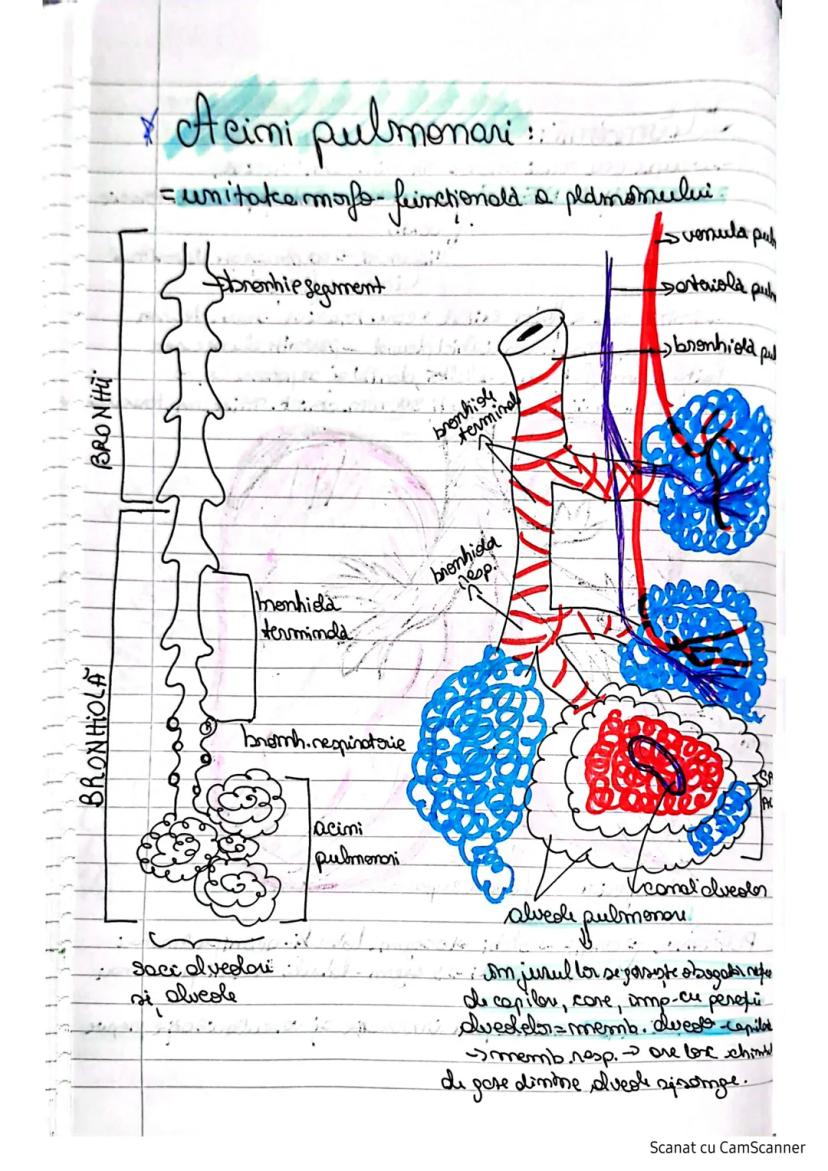 Acini pulmonari :
= unitatea morfo-funcțională a plămânului
BRONHII
bronhie segment
BRONHIOLĂ
bronhiolă
terminală
bronh. respiratorie
acini
pulmonari
saci alveolari
și alveole
venula pul
arteriola pul
bronhiolă pul
bronhiole
terminale
bronhiola
resp.
canal alveolar
alveole pulmonare
în jurul lor se găsește o bogată rețe
de capilare, care, imp. cu pereții
alveolelor = memb. alveolo-capilar
→ memb. resp. → are loc schimbul
de gaze dintre alveole și sânge.
Scanat cu CamScanner